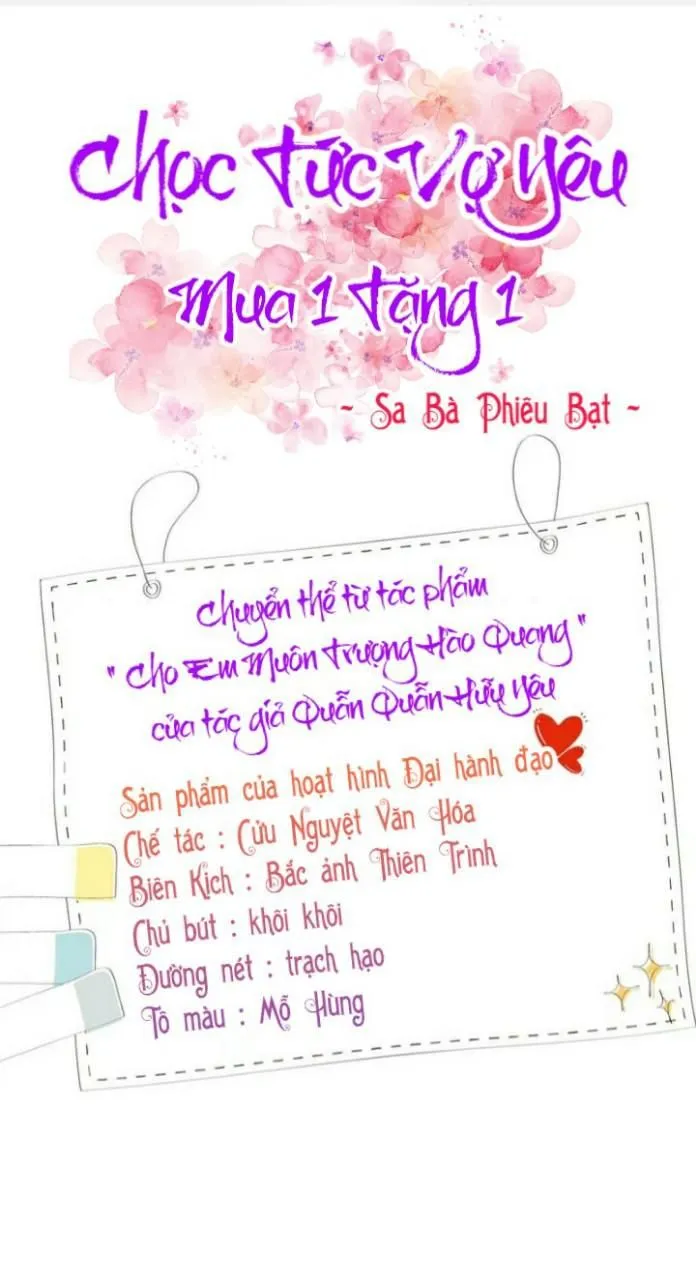 Chọc Tức Vợ Yêu
Mua 1 Tặng 1
~ Sa Bà Phiêu Bạt ~
Chuyển thể từ tác phẩm
" Cho Em Muôn Trượng Hào Quang "
của tác giả Quẫn Quẫn Hữu Yêu
Sản phẩm của hoạt hình Đại hành đạo
Chế tác : Cửu Nguyệt Văn Hóa
Biên Kịch : Bắc ảnh Thiên Trình
Chủ bút : khôi khôi
Đường nét : trạch hạo
Tô màu : Mỗ Hùng